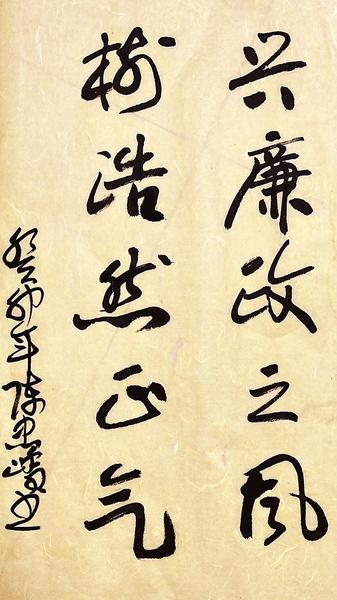 兴廉政之风
树浩然正气
癸卯年陈忠嶓书